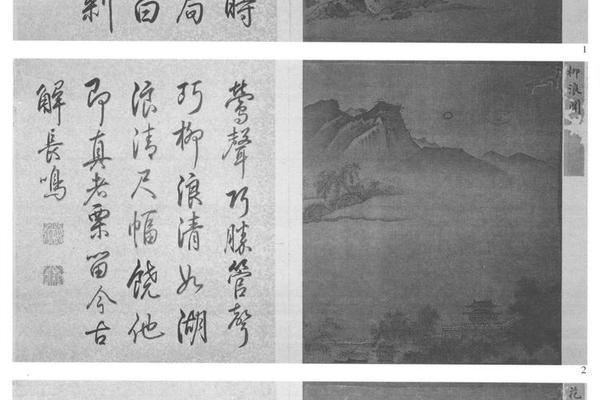 時
1
柳浪聞
鶯聲巧勝管聲
巧柳浪清如湖
浪清尺幅饒他
即真者栗留今古
解長鳴
2
花